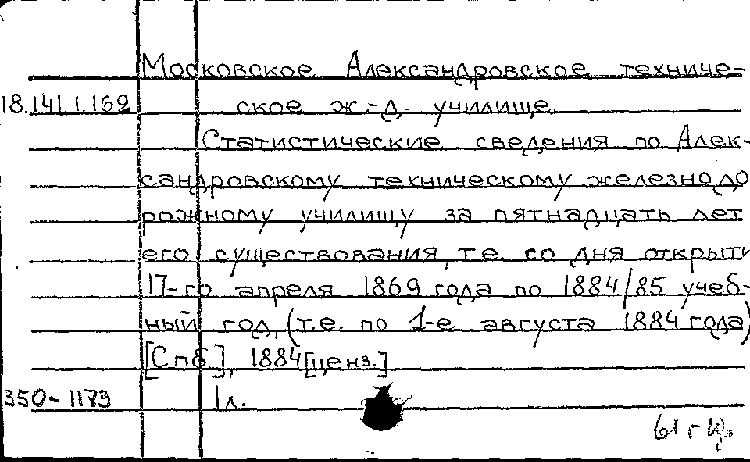 Московское Александровское техниче-
18.141.1.162 ское ж.-д. училище.
Статистические сведения по Алек-
сандровскому техническому железнодо
рожному училищу за пятнадцать лет
его существования, т.е. со дня открыти
17-го апреля 1869 года по 1884/85 учеб-
ный год, (т.е. по 1-е августа 1884 года)
[Спб], 1884 [ценз.]
350-1173 1л.